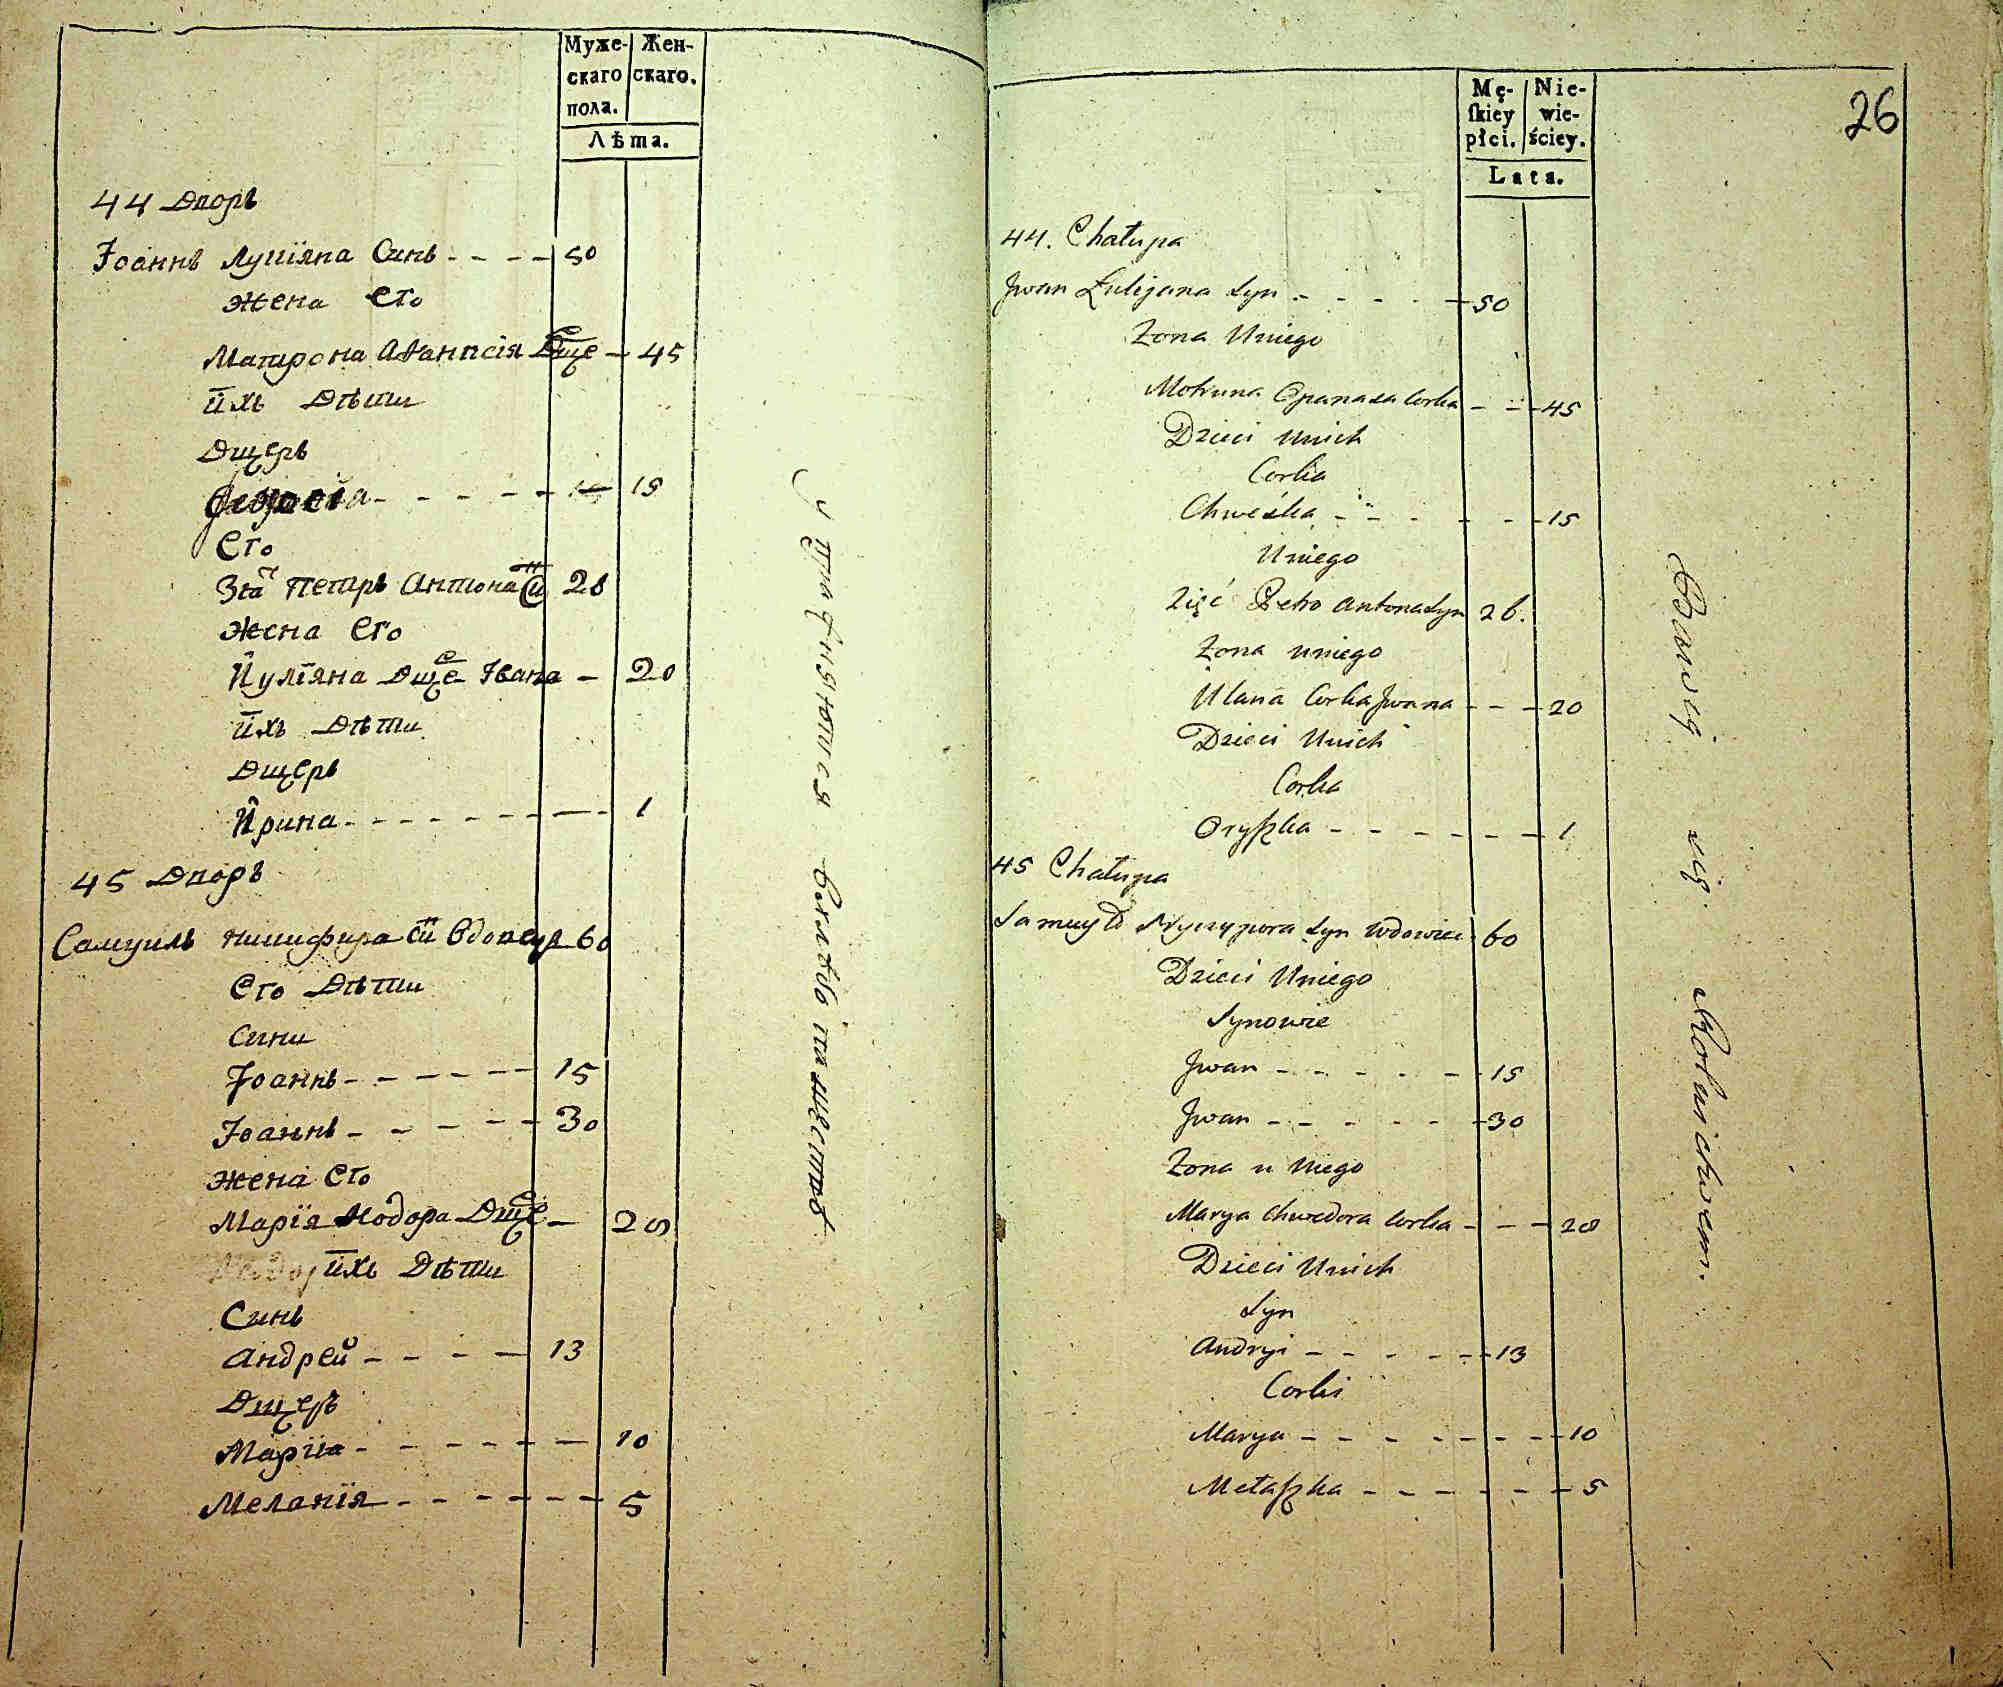 Муже-
скаго
пола.
Жен-
скаго.
Лѣта.
44 Дворъ
Іоаннъ Луціяна Синъ - - - - 50
Жена Его
Матрона Аѳанасія Дще - 45
ихъ Дѣти
Дщерь
- - - - - 15
Его
Зя Петръ Антона Си 28
Жена Его
Иуліяна Дще Івана - 20
ихъ Дѣти
Дщерь
Ирина - - - - - - - - 1
45 Дворъ
Самуилъ Никифора си Вдовец 60
Его Дѣти
Сини
Іоаннъ - - - - - - 15
Іоаннъ - - - - - 30
Жена Его
Марія Ѳодора Дще - 28
ихъ Дѣти
Синъ
Андрей - - - - 13
Дщеръ
Марія - - - - - - - 10
Меланія - - - - - - - 5
упражняются
Mę-
ſkiey
płci.
Nie-
wie-
ściey.
Lata.
26
44. Chałupa
Jwan Łulijana Syn - - - - - 50
Zona Uniego
Motruna Opanasa Corka - - - 45
Dzieci Unich
Corka
Chweśka - - - - - - 15
Uniego
Zięć Petro Antona Syn 26.
Zona uniego
Ulana Corka Jwana - - - 20
Dzieci Unich
Corka
Oryſzka - - - - - - 1
45 Chałupa
Samuyło Nyczypora Syn Wdowiec 60
Dzieci Uniego
Synowie
Jwan - - - - - - 15
Jwan - - - - - - 30
Zona u Niego
Marya Chwedora Corka - - - 28
Dzieci Unich
Syn
Andryi - - - - - - 13
Corki
Marya - - - - - - - - 10
Mełaſzka - - - - - - - 5
Bawią się Rolnictwem.